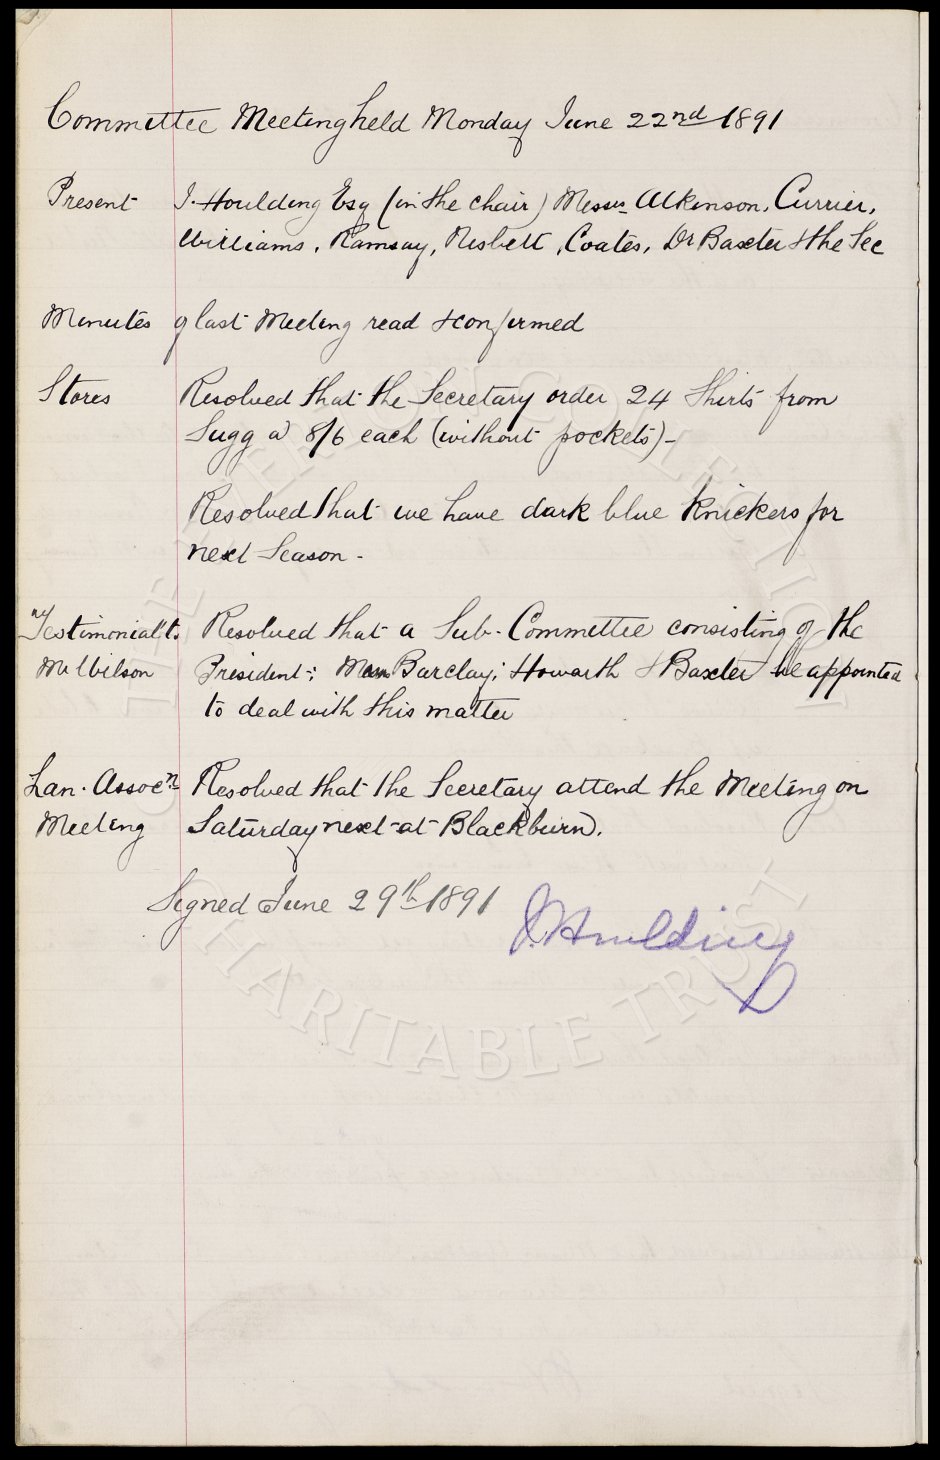 Committee Meeting held Monday June 22nd 1891
Present J. Houlding Esq (in the chair) Messrs Atkinson, Currier,
Williams, Ramsay, Nisbett, Coates, Dr Baxter & the Sec
Minutes of last Meeting read & confirmed
Stores Resolved that the Secretary order 24 Shirts from
Sugg @ 8/6 each (without pockets)-
Resolved that we have dark blue Knickers for
next Season -
Testimonial to Resolved that a Sub-Committee consisting of the
Mr Wilson President; Messrs Barclay; Howarth & Baxter be appointed
to deal with this matter
Lan. Assocn Resolved that the Secretary attend the Meeting on
Meeting Saturday next at Blackburn.
Signed June 29th 1891 J. Houlding
THE EVERTON COLLECTION
CHARITABLE TRUST